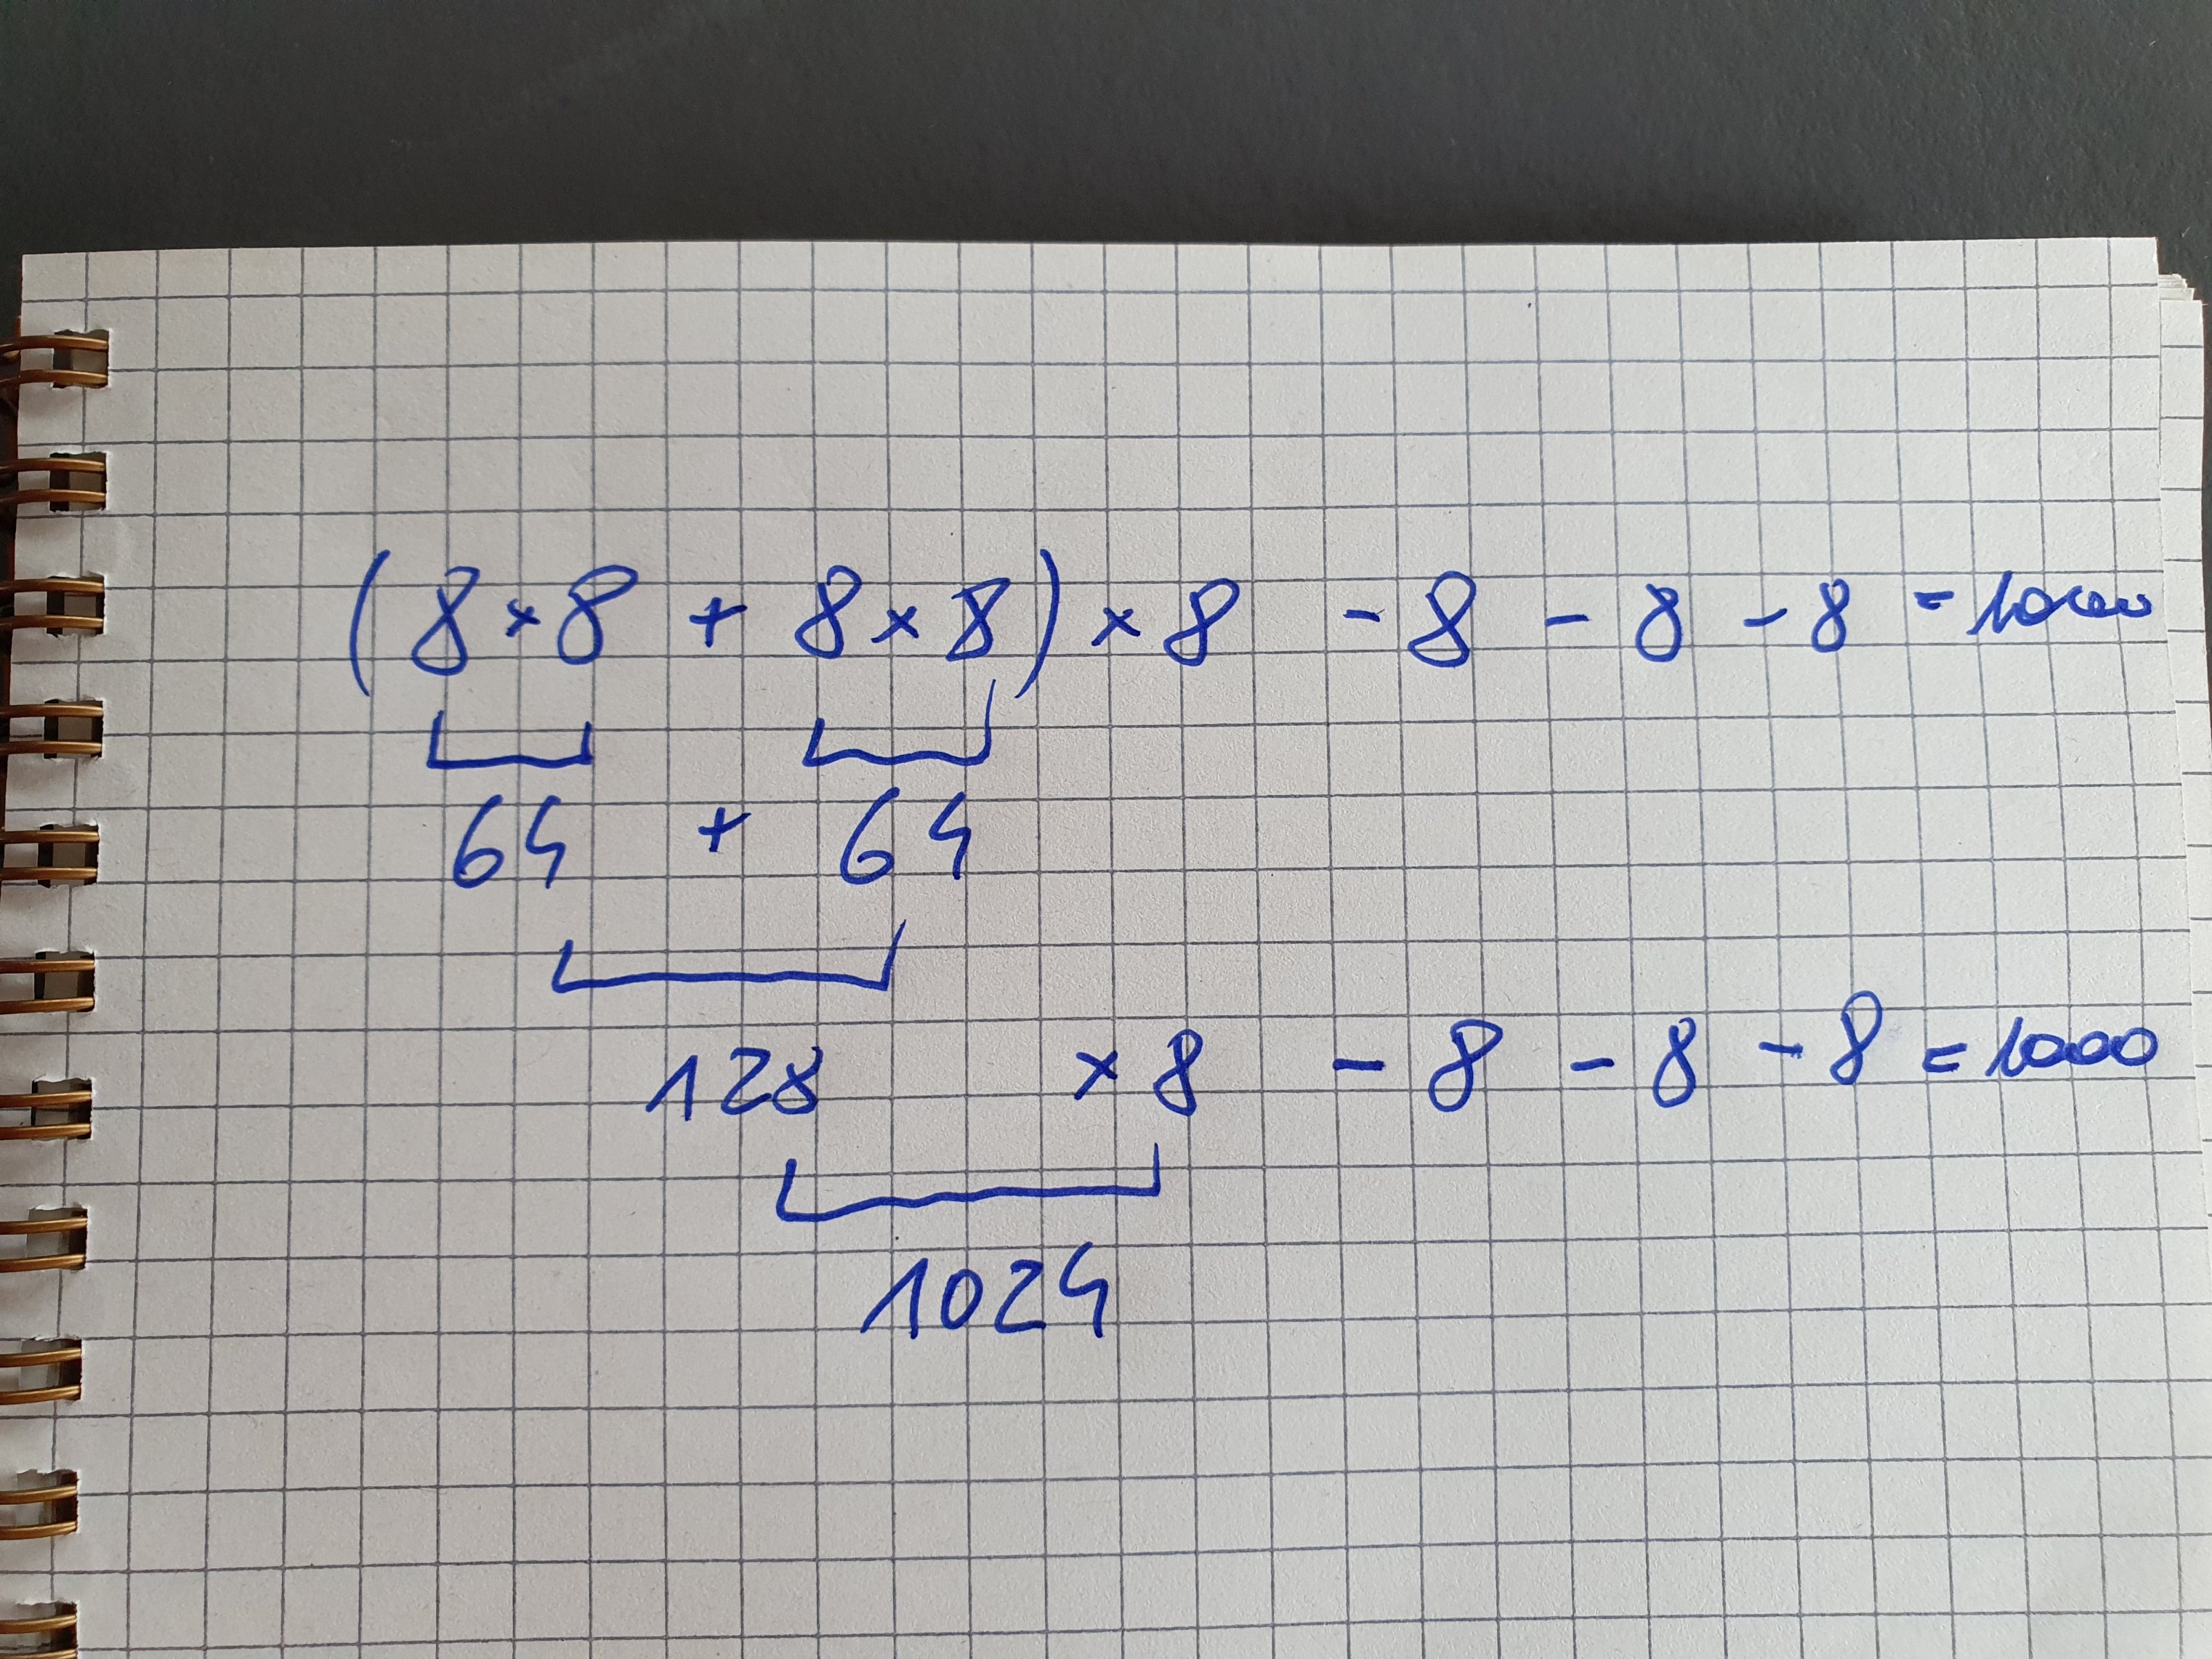 (8×8 + 8×8)×8 - 8 - 8 - 8 = 1000
64 + 64
128 × 8 - 8 - 8 - 8 = 1000
1024